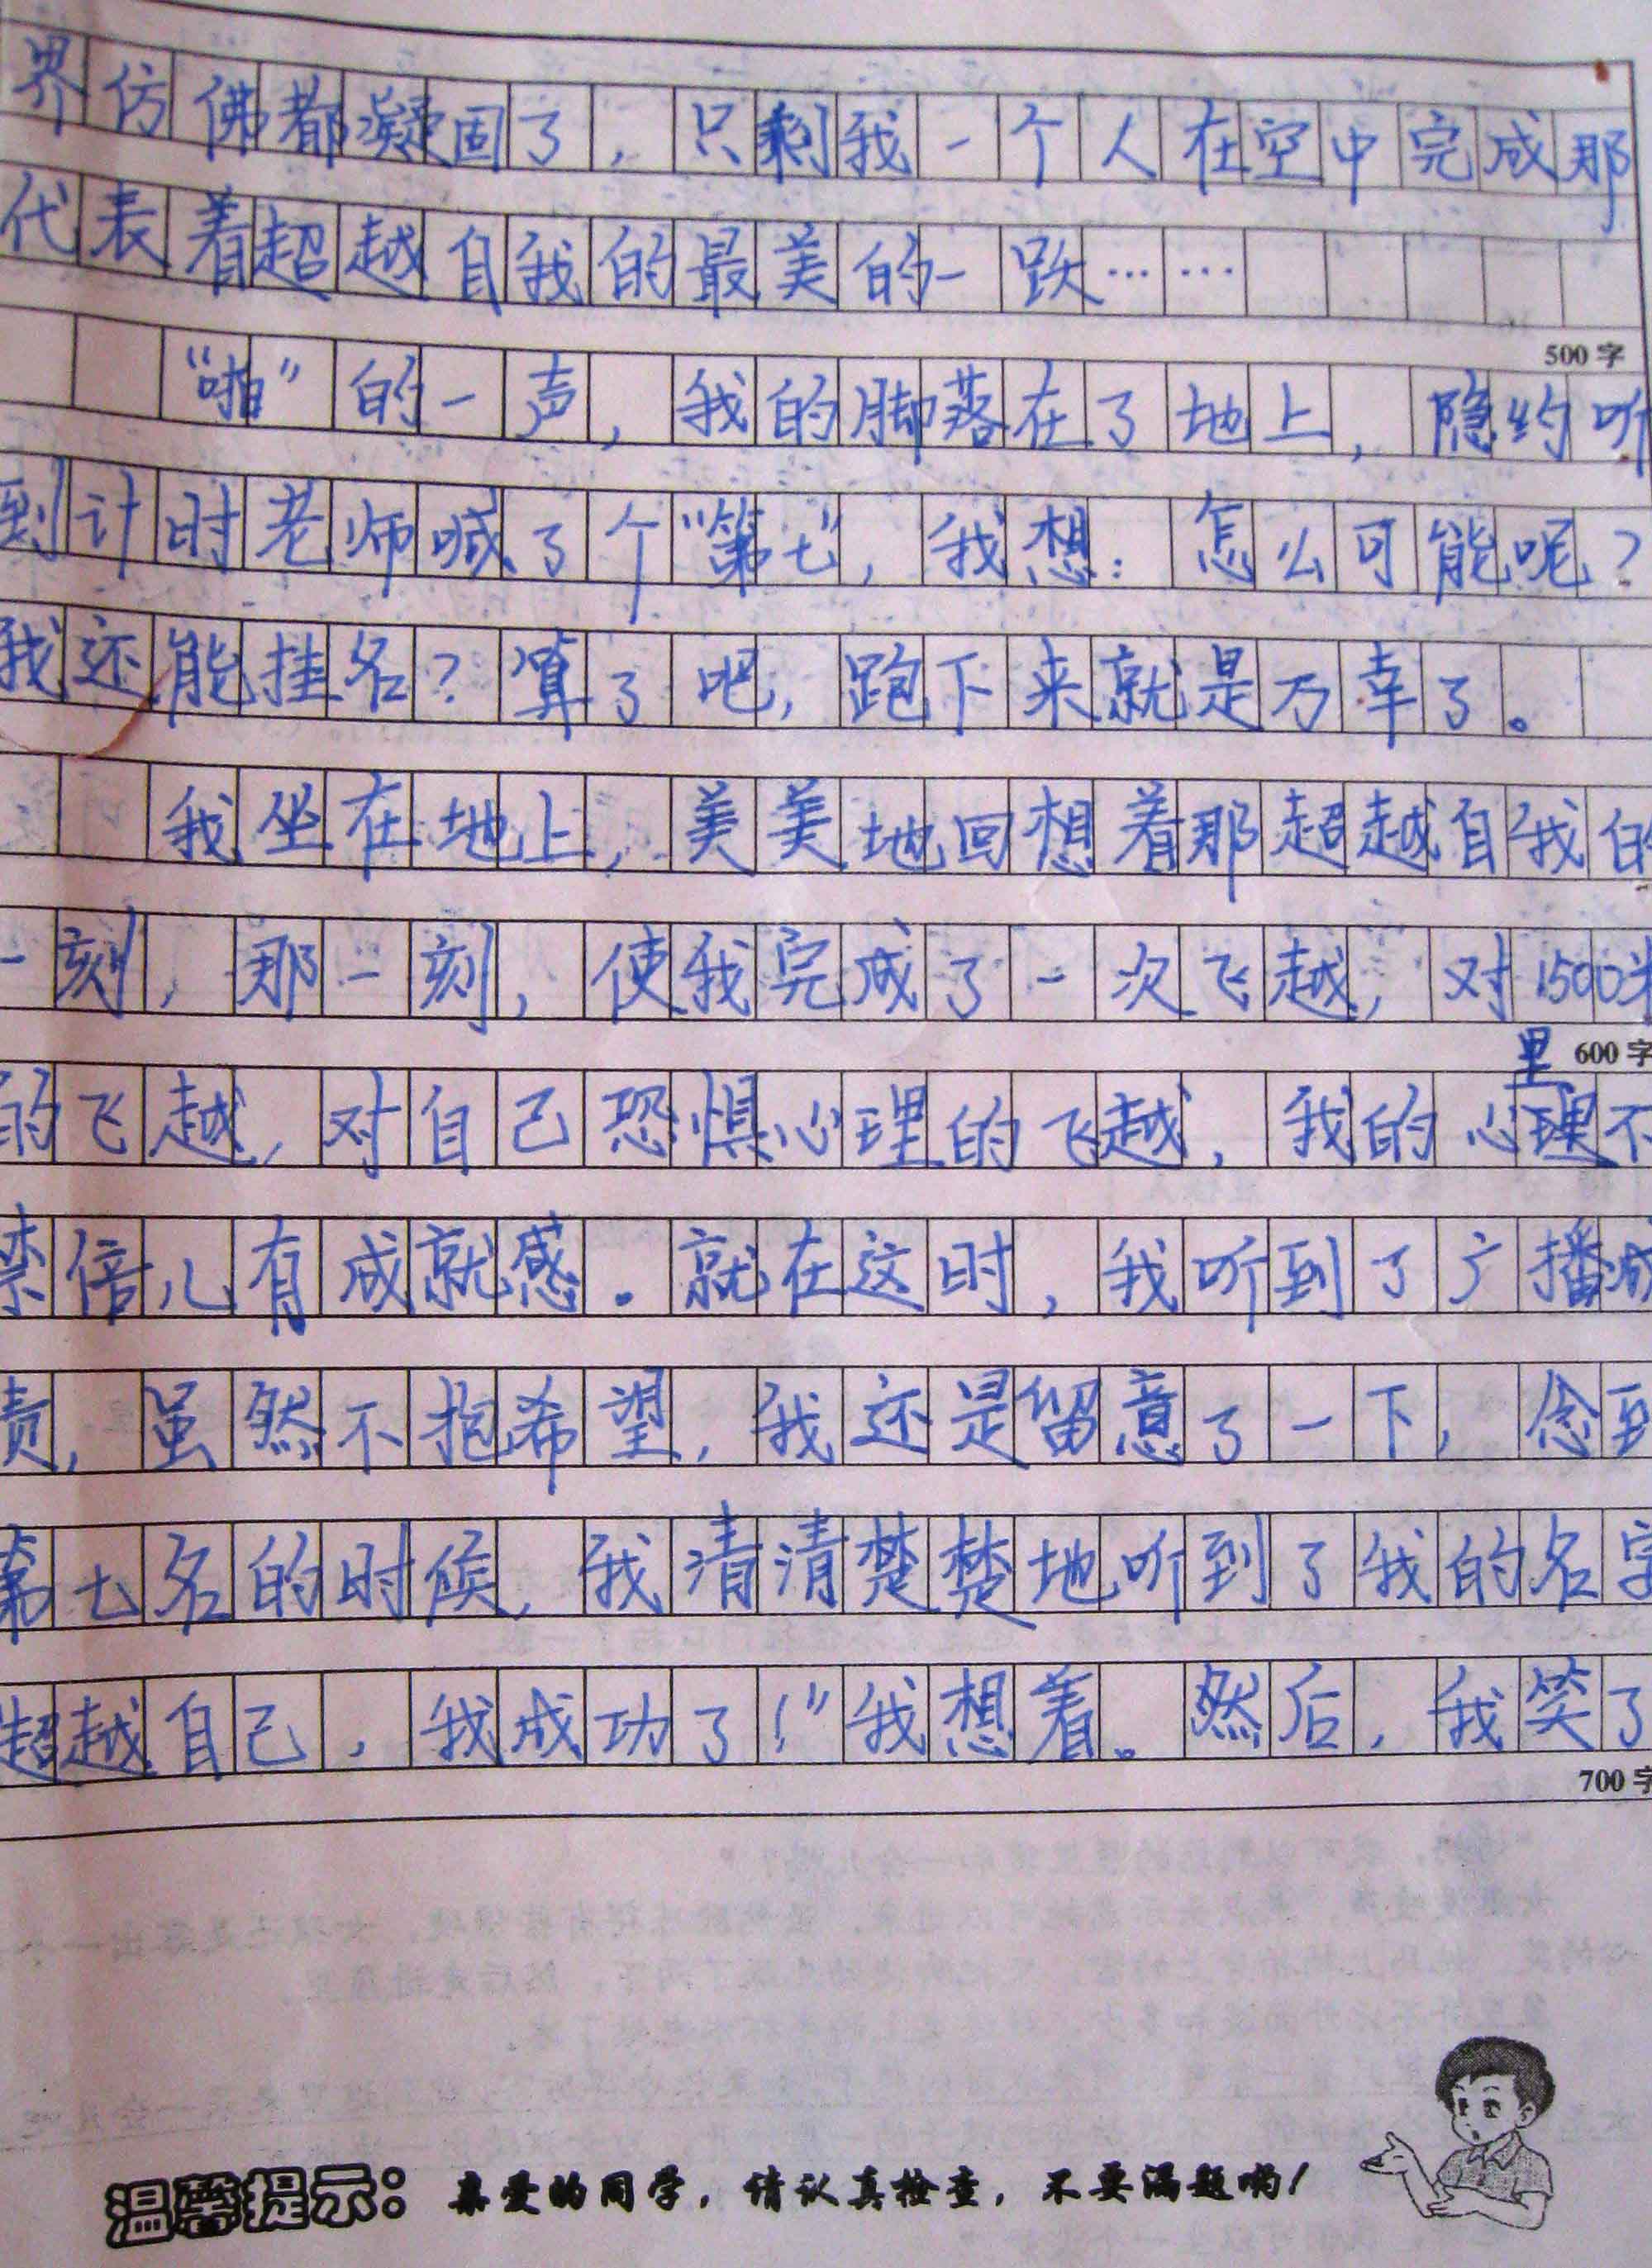 界仿佛都凝固了，只剩我一个人在空中完成那
代表着超越自我的最美的一跃……
500字
“啪”的一声，我的脚落在了地上，隐约听
到计时老师喊了个“第七”，我想：怎么可能呢？
我还能挂名？算了吧，跑下来就是万幸了。
我坐在地上，美美地回想着那超越自我的
一刻，那一刻，使我完成了一次飞越，对1500米
里 600字
的飞越，对自己恐惧心理的飞越，我的心理不
禁倍儿有成就感。就在这时，我听到了广播成
责，虽然不抱希望，我还是留意了一下，念到
第七名的时候，我清清楚楚地听到了我的名字
超越自己，我成功了！”我想着。然后，我笑了
700字
温馨提示：亲爱的同学，请认真检查，不要漏题哟！